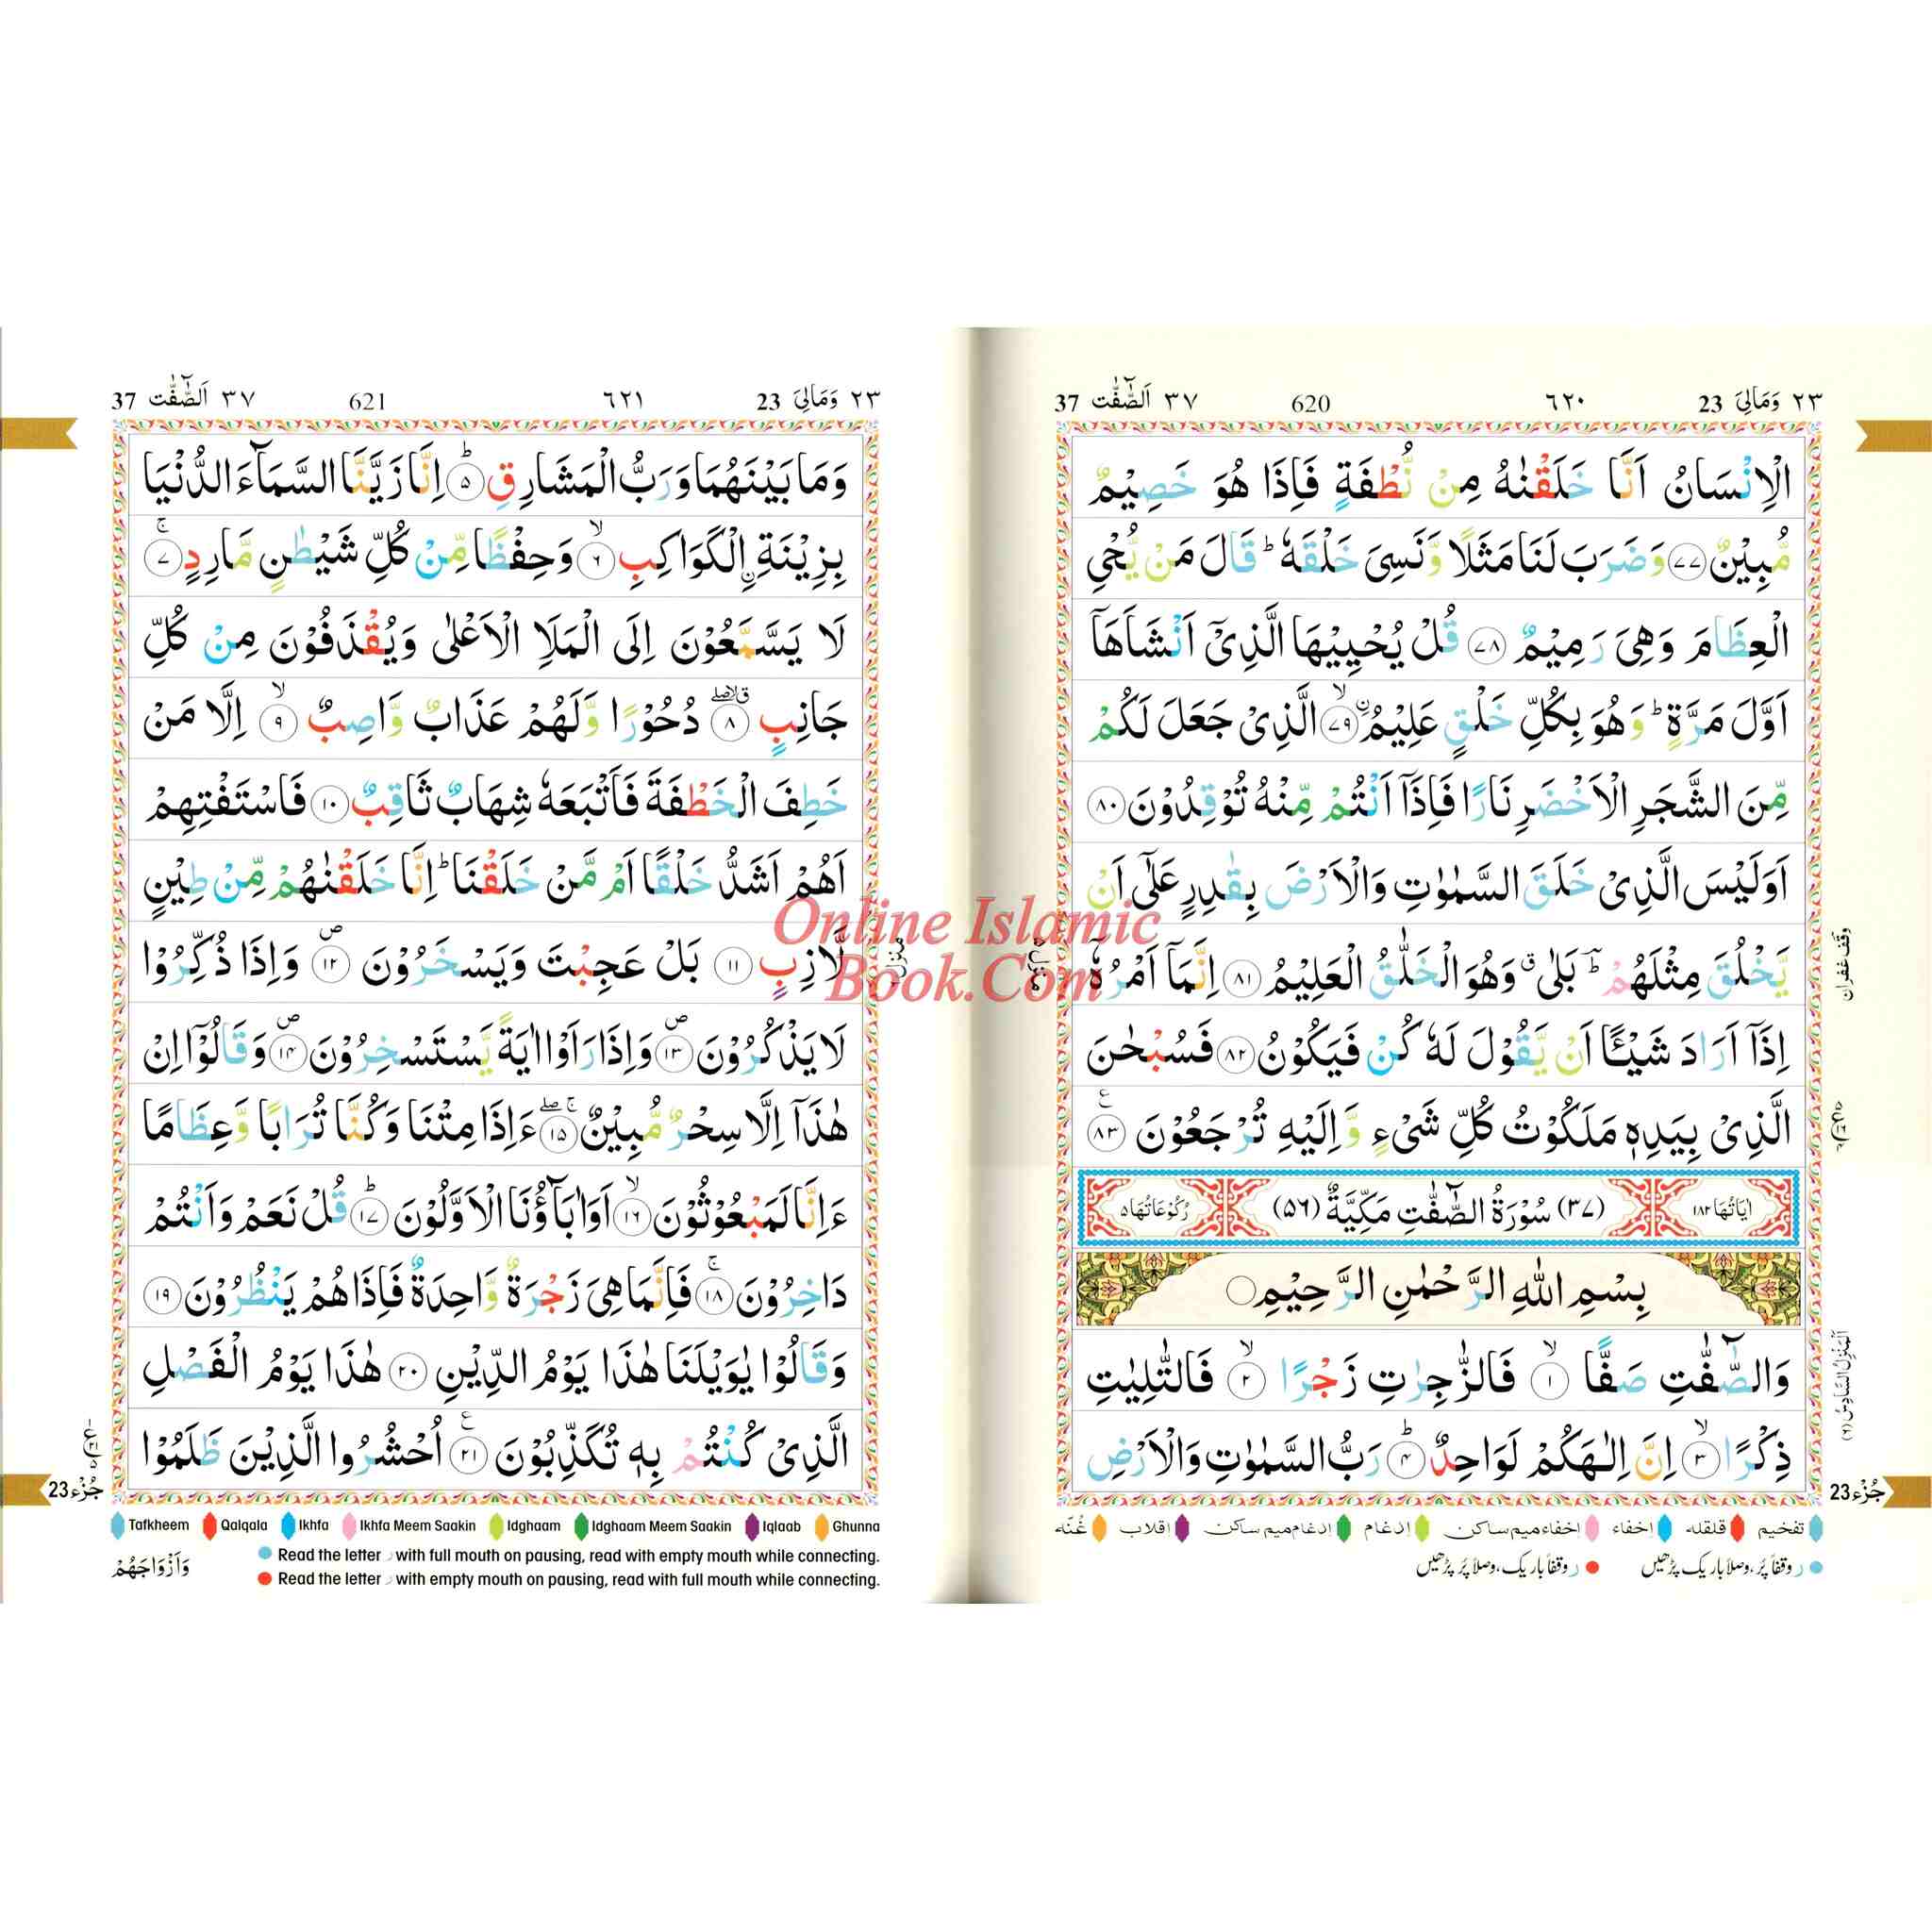 ٢٣ وَمَالِیَ 23 ٦٢٠ 620 ٣٧ اَلصّٰٓفّٰت 37
الْاِنْسَانُ اَنَّا خَلَقْنٰهُ مِنْ نُّطْفَةٍ فَاِذَا هُوَ خَصِيْمٌ
مُّبِيْنٌ ﴿٧٧﴾ وَضَرَبَ لَنَا مَثَلًا وَّنَسِيَ خَلْقَهٗ ؕ قَالَ مَنْ يُّحْيِ
الْعِظَامَ وَهِيَ رَمِيْمٌ ﴿٧٨﴾ قُلْ يُحْيِيْهَا الَّذِيْٓ اَنْشَاَهَآ
اَوَّلَ مَرَّةٍ ؕ وَهُوَ بِكُلِّ خَلْقٍ عَلِيْمُ ۙ﴿٧٩﴾ۨ الَّذِيْ جَعَلَ لَكُمْ
مِّنَ الشَّجَرِ الْاَخْضَرِ نَارًا فَاِذَآ اَنْتُمْ مِّنْهُ تُوْقِدُوْنَ ﴿٨٠﴾
اَوَلَيْسَ الَّذِيْ خَلَقَ السَّمٰوٰتِ وَالْاَرْضَ بِقٰدِرٍ عَلٰٓى اَنْ
يَّخْلُقَ مِثْلَهُمْ ؕ بَلٰى ۗ وَهُوَ الْخَلّٰقُ الْعَلِيْمُ ﴿٨١﴾ اِنَّمَآ اَمْرُهٗٓ
اِذَآ اَرَادَ شَيْـًٔا اَنْ يَّقُوْلَ لَهٗ كُنْ فَيَكُوْنُ ﴿٨٢﴾ فَسُبْحٰنَ
الَّذِيْ بِيَدِهٖ مَلَكُوْتُ كُلِّ شَيْءٍ وَّاِلَيْهِ تُرْجَعُوْنَ ﴿٨٣﴾
اٰيَاتُهَا ١٨٢ (٣٧) سُوْرَةُ الصّٰٓفّٰتِ مَكِّيَّةٌ (٥٦) رُكُوْعَاتُهَا ٥
بِسْمِ اللّٰهِ الرَّحْمٰنِ الرَّحِيْمِ
وَالصّٰٓفّٰتِ صَفًّا ۙ﴿١﴾ فَالزّٰجِرٰتِ زَجْرًا ۙ﴿٢﴾ فَالتّٰلِيٰتِ
ذِكْرًا ۙ﴿٣﴾ اِنَّ اِلٰهَكُمْ لَوَاحِدٌ ؕ﴿٤﴾ رَبُّ السَّمٰوٰتِ وَالْاَرْضِ
وقف غفران
اَلْمَنْزِلُ السَّادِسُ (٦)
جُزْء 23
تفخیم قلقله إخفاء إخفاء میم ساکن إدغام إدغام میم ساکن اقلاب غُنّه
ر وقفاً پُر، وصلاً باریک پڑھیں ر وقفاً باریک، وصلاً پُر پڑھیں
٢٣ وَمَالِیَ 23 ٦٢١ 621 ٣٧ اَلصّٰٓفّٰت 37
وَمَا بَيْنَهُمَا وَرَبُّ الْمَشَارِقِ ؕ﴿٥﴾ اِنَّا زَيَّنَّا السَّمَآءَ الدُّنْيَا
بِزِيْنَةِ ۨالْكَوَاكِبِ ۙ﴿٦﴾ وَحِفْظًا مِّنْ كُلِّ شَيْطٰنٍ مَّارِدٍ ۚ﴿٧﴾
لَا يَسَّمَّعُوْنَ اِلَى الْمَلَاِ الْاَعْلٰى وَيُقْذَفُوْنَ مِنْ كُلِّ
جَانِبٍ ﴿٨﴾ دُحُوْرًا وَّلَهُمْ عَذَابٌ وَّاصِبٌ ۙ﴿٩﴾ اِلَّا مَنْ
خَطِفَ الْخَطْفَةَ فَاَتْبَعَهٗ شِهَابٌ ثَاقِبٌ ﴿١٠﴾ فَاسْتَفْتِهِمْ
اَهُمْ اَشَدُّ خَلْقًا اَمْ مَّنْ خَلَقْنَا ؕ اِنَّا خَلَقْنٰهُمْ مِّنْ طِيْنٍ
لَّازِبٍ ﴿١١﴾ بَلْ عَجِبْتَ وَيَسْخَرُوْنَ ۪﴿١٢﴾ وَاِذَا ذُكِّرُوْا
لَا يَذْكُرُوْنَ ۪﴿١٣﴾ وَاِذَا رَاَوْا اٰيَةً يَّسْتَسْخِرُوْنَ ۪﴿١٤﴾ وَقَالُوْٓا اِنْ
هٰذَآ اِلَّا سِحْرٌ مُّبِيْنٌ ﴿١٥﴾ ءَاِذَا مِتْنَا وَكُنَّا تُرَابًا وَّعِظَامًا
ءَاِنَّا لَمَبْعُوْثُوْنَ ۙ﴿١٦﴾ اَوَاٰبَآؤُنَا الْاَوَّلُوْنَ ؕ﴿١٧﴾ قُلْ نَعَمْ وَاَنْتُمْ
دَاخِرُوْنَ ۚ﴿١٨﴾ فَاِنَّمَا هِيَ زَجْرَةٌ وَّاحِدَةٌ فَاِذَا هُمْ يَنْظُرُوْنَ ﴿١٩﴾
وَقَالُوْا يٰوَيْلَنَا هٰذَا يَوْمُ الدِّيْنِ ﴿٢٠﴾ هٰذَا يَوْمُ الْفَصْلِ
الَّذِيْ كُنْتُمْ بِهٖ تُكَذِّبُوْنَ ﴿٢١﴾ اُحْشُرُوا الَّذِيْنَ ظَلَمُوْا
جُزْء 23
Tafkheem Qalqala Ikhfa Ikhfa Meem Saakin Idghaam Idghaam Meem Saakin Iqlaab Ghunna
Read the letter ر with full mouth on pausing, read with empty mouth while connecting.
Read the letter ر with empty mouth on pausing, read with full mouth while connecting.
وَاَزْوَاجَهُمْ
Online Islamic
Book.Com